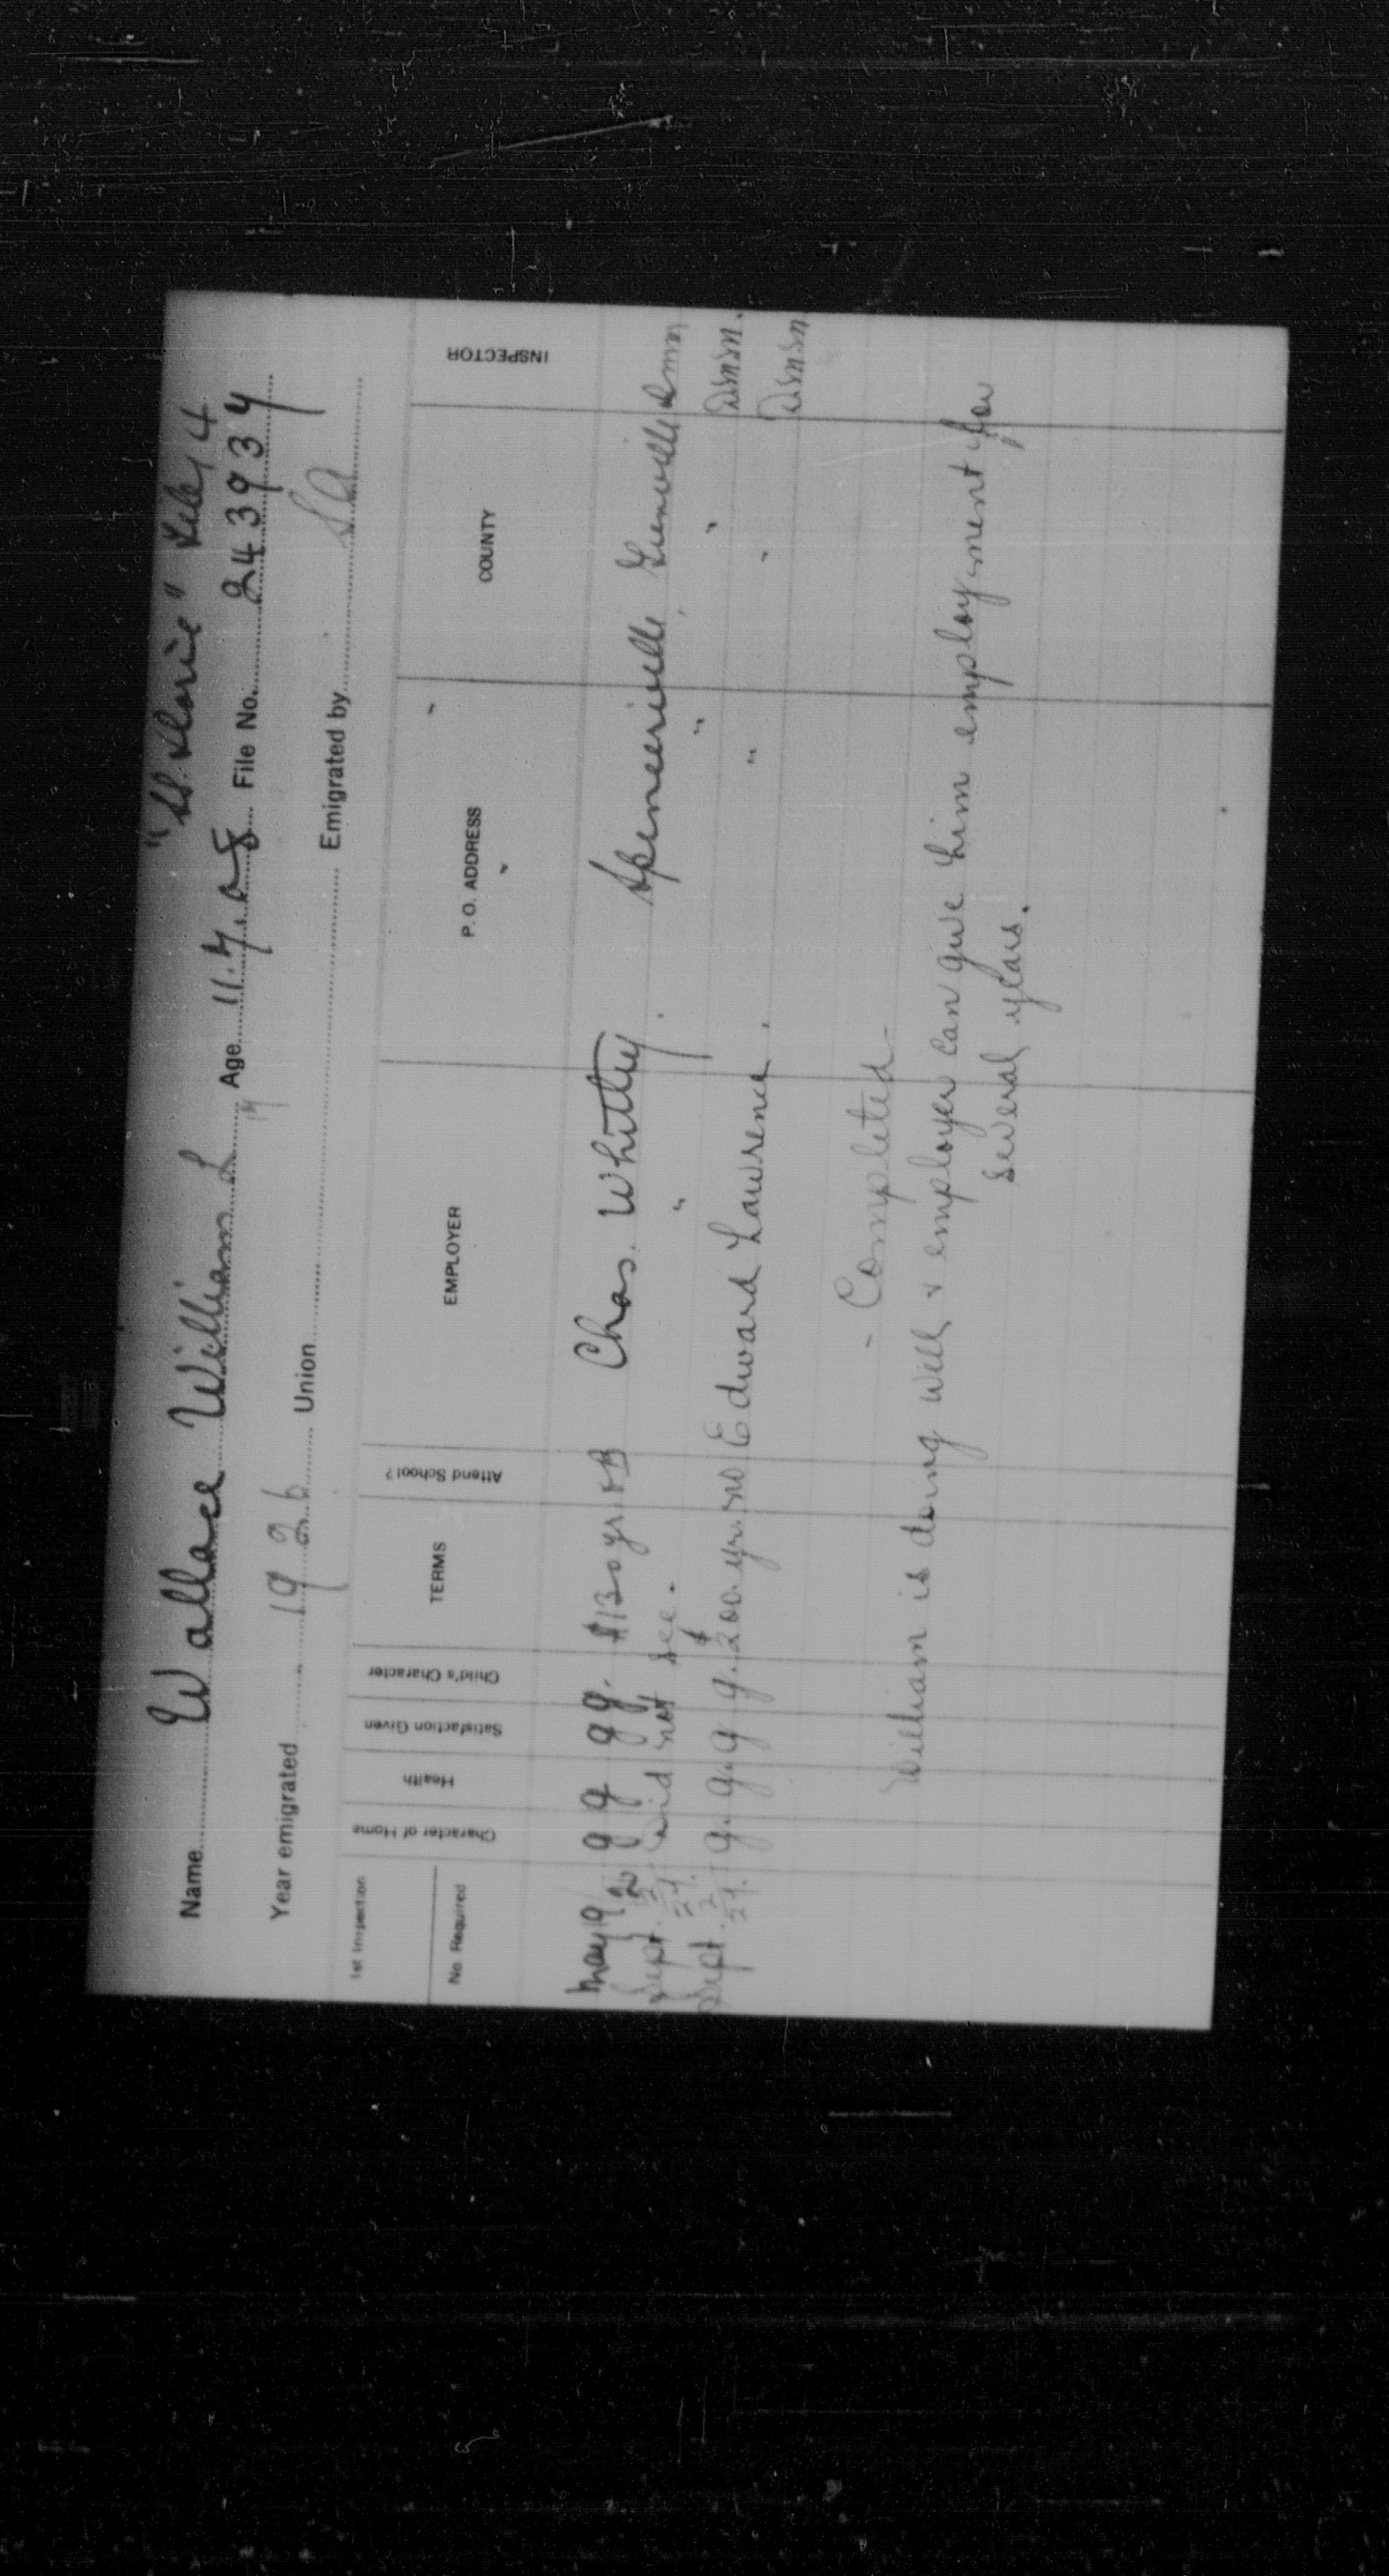 "St. Davie" July 4
Name Wallace William L Age 11.7.08 File No. 243934
17
Year emigrated 1926 Union Emigrated by SA
1st Inspection
No. Required
Character of Home
Health
Satisfaction Given
Child's Character
TERMS
Attend School?
EMPLOYER
P. O. ADDRESS
COUNTY
INSPECTOR
May 19/27 g g g g. $130 yr. & B Chas. Whitley. Spencerville, Grenville
Sept. 27. Did not see. " " "
Sept. 27. g. g. g g. $200. yr. no Edward Lawrence. " "
- Completed -
William is doing well & employer can give him employment for
several years.